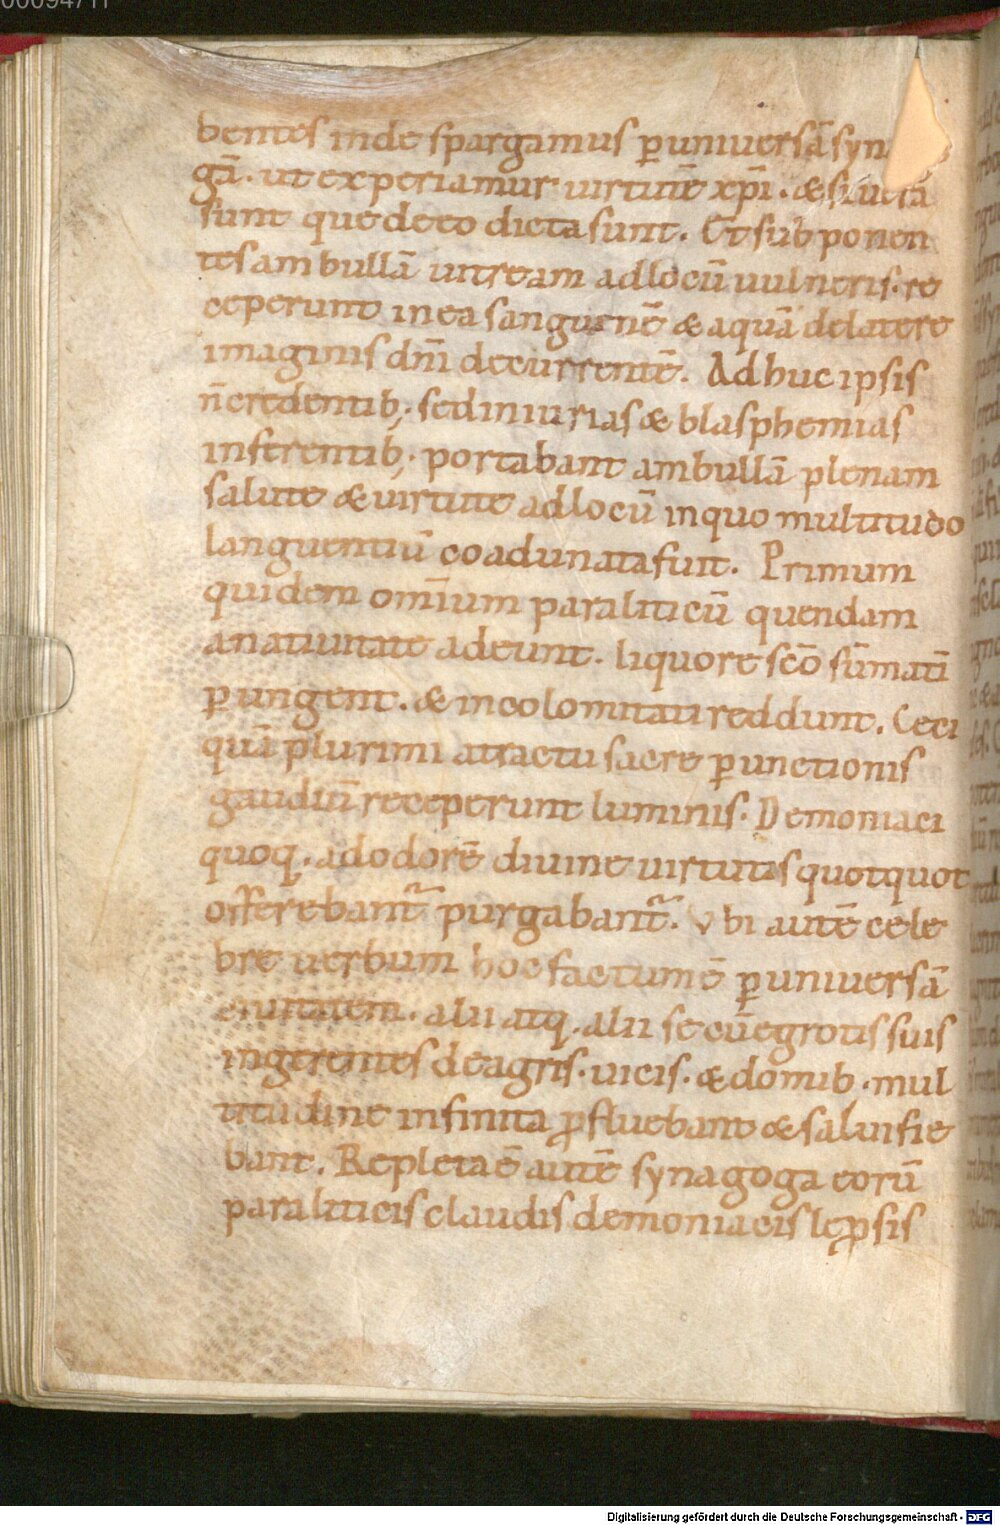 00094711
bentes inde spargamus ꝑuniuersā syn
gā. ut experiamur uirtutē xp̄i. & si uera
sunt que de eo dicta sunt. Et sub ponen
tes ambullā uitream ad locū uulneris. re
ceperunt in ea sanguinē & aquā de latere
imaginis dn̄i decurrentē. Ad huc ipsis
n̄ credentib; sed iniurias & blasphemias
inferentib; portabant ambullā plenam
salute & uirtute ad locū in quo multitudo
languentiū coadunata fuit. Primum
quidem omīum paraliticū quendam
a natiuitate adeunt. liquore scō sūmatī
ꝑungent. & incolomitati reddunt. Ceci
quā plurimi atractu sacre ꝑunctionis
gaudiū receperunt luminis. Demoniaci
quoq. ad odorē diuine uirtutis quotquot
offerebant᷑ purgabant᷑. Vbi autē cele
bre uerbum hoc factum ē ꝑ uniuersā
ciuitatem. alii atq. alii se cū egrotis suis
ingerentes de agris. uicis. & domib. mul
titudine infinita ꝓfluebant & salui fie
bant. Repleta ē autē synagoga eorū
paraliticis claudis demoniacis leꝓsis
Digitalisierung gefördert durch die Deutsche Forschungsgemeinschaft - DFG